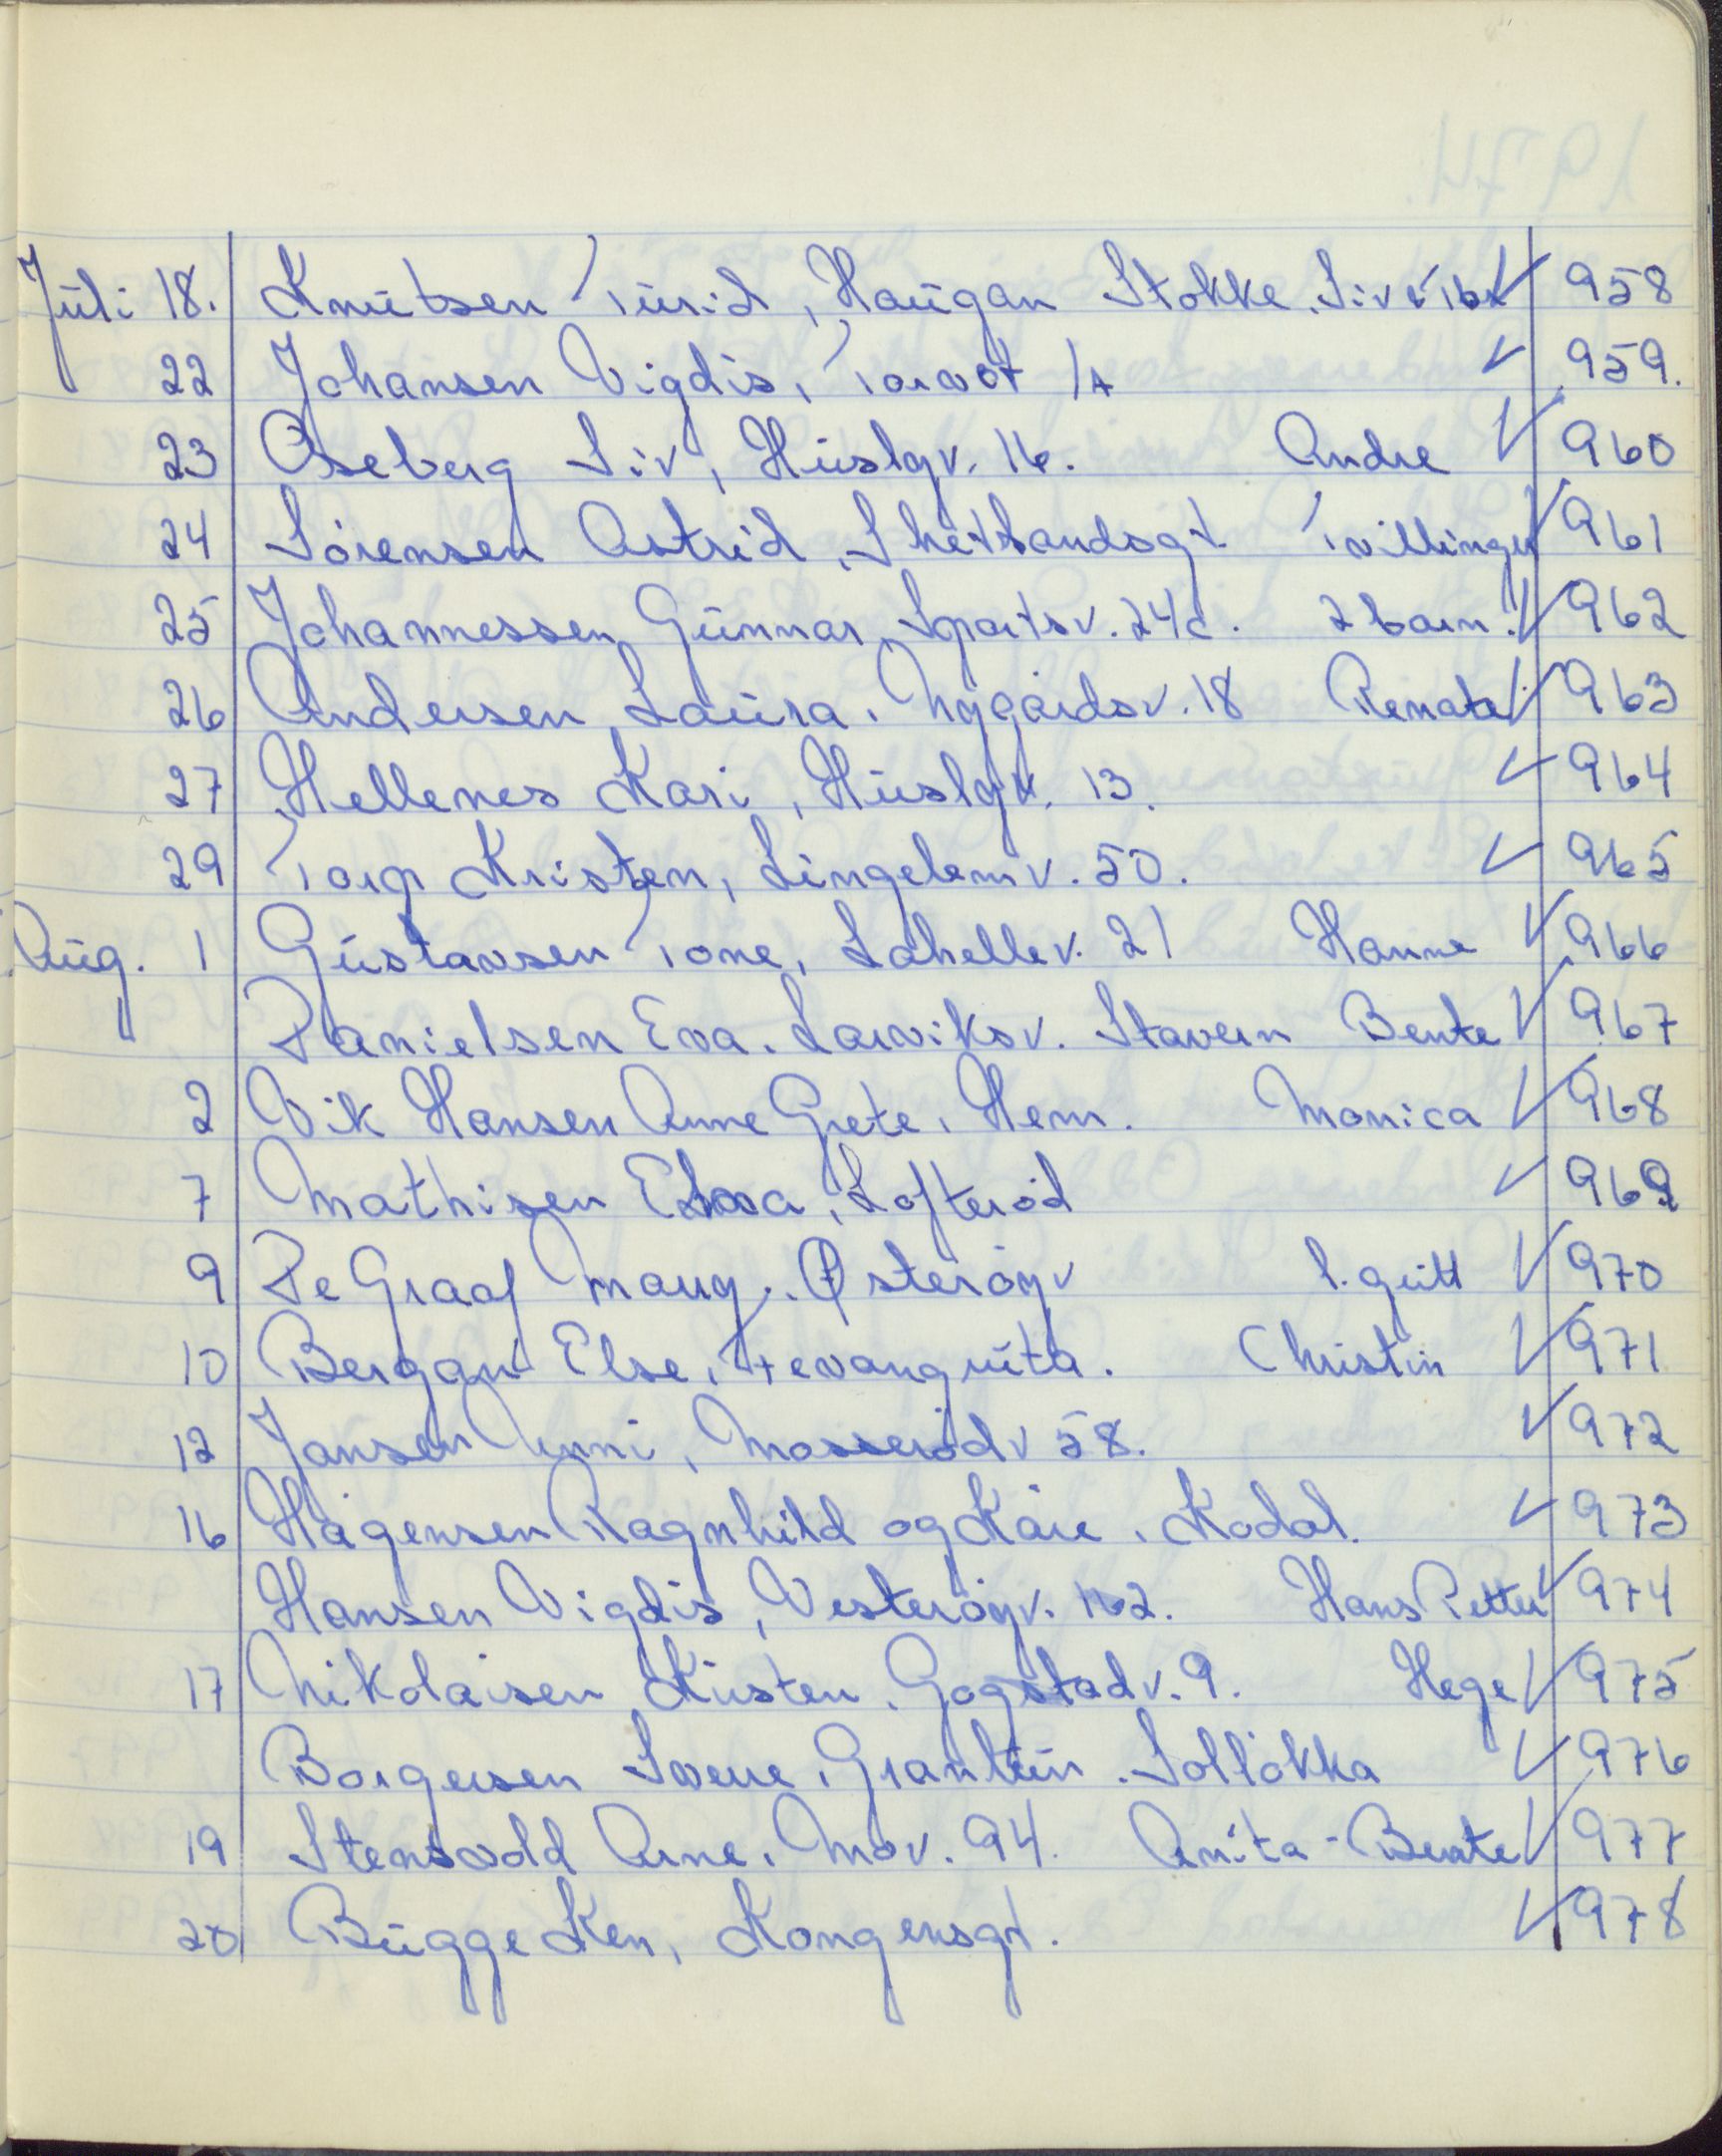 Juli 18. Knutsen Turid, Haugan Stokke. Siv & Ibx ✓ 958
22 Johansen Vigdis, Torvet 1A ✓ 959.
23 Oseberg Liv, Huslyv. 16. Andre ✓ 960
24 Sörensen Astrid, Shetlandsgt Tvillinger ✓ 961
25 Johannessen Gunnar, Sportsv. 24c. 2 barn. ✓ 962
26 Andersen Laura, Nygårdsv. 18 Renate ✓ 963
27 Hellenes Kari, Huslyv. 13. ✓ 964
29 Torp Kristen, Lingelemv. 50. ✓ 965
Aug. 1 Gustavsen Tone, Lahellev. 21 Hanne ✓ 966
Danielsen Eva. Larviksv. Stavern Bente ✓ 967
2 Vik Hansen Anne Grete, Hem. Monica ✓ 968
7 Mathisen Elsa, Lofteröd ✓ 969
9 De Graaf Mary. Østeröyv l. gutt ✓ 970
10 Bergan Else, Fevangruta. Christin ✓ 971
12 Jansen Unni, Mosserödv 58. ✓ 972
16 Hagensen Ragnhild og Kåre, Kodal. ✓ 973
Hansen Vigdis, Vesteröyv. 162. Hans Petter ✓ 974
17 Nikolaisen Kirsten. Gogstadv. 9. Hege ✓ 975
Borgersen Sverre, Grantun. Solløkka ✓ 976
19 Stensvold Arne, Mov. 94. Anita-Beate ✓ 977
20 Bugge Ken, Kongensgt. ✓ 978